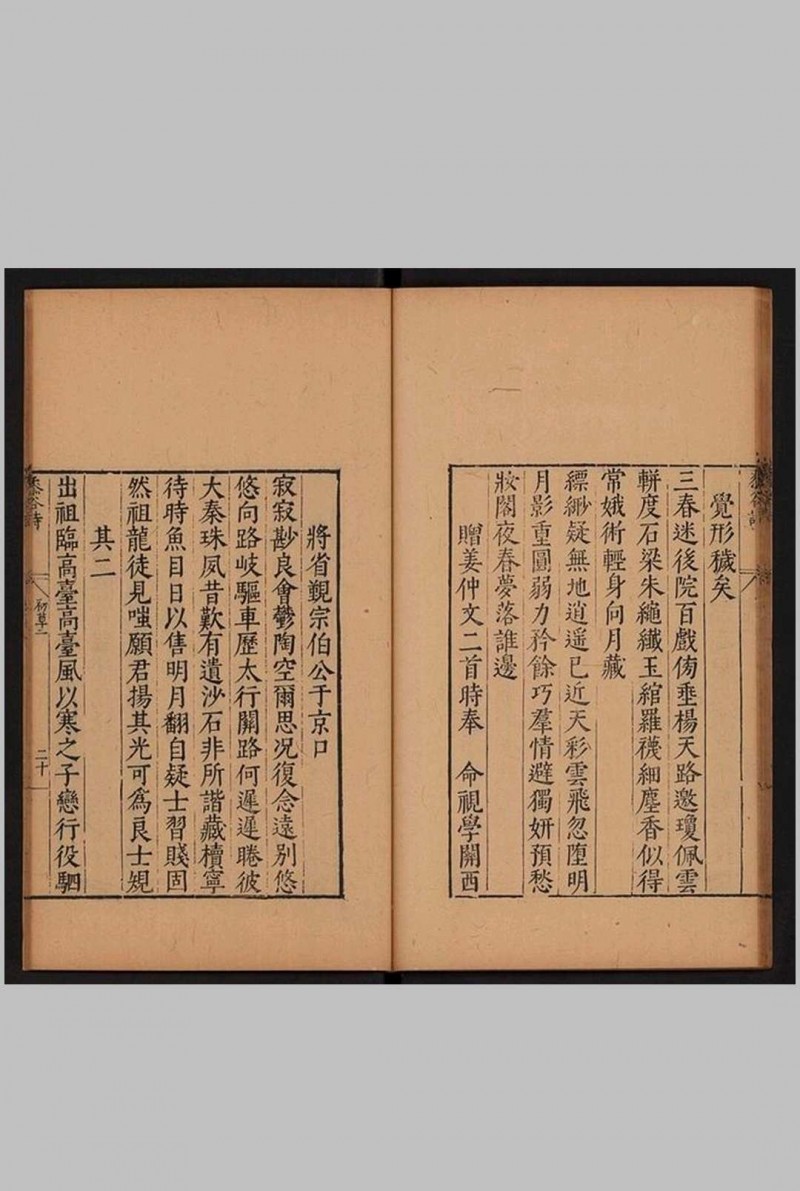 覺形穢矣
三春迷後院百戲傍垂楊天路邀瓊佩雲
輧度石梁朱繩纖玉綰羅襪細塵香似得
常娥術輕身向月藏
縹緲疑無地逍遥已近天彩雲飛忽墮明
月影重圓弱力矜餘巧羣情避獨妍預愁
妝閣夜春夢落誰邊
贈姜仲文二首時奉 命視學關西
將省覲宗伯公于京口
寂寂尠良會鬱陶空爾思況復念遠别悠
悠向路岐驅車歷太行關路何遲遲睠彼
大秦珠夙昔歎有遺沙石非所諧藏櫝寧
待時魚目日以售明月翻自疑士習賤固
然祖龍徒見嗤願君揚其光可爲良士規
其二
出祖臨高臺高臺風以寒之子戀行役駟
初草二
二十